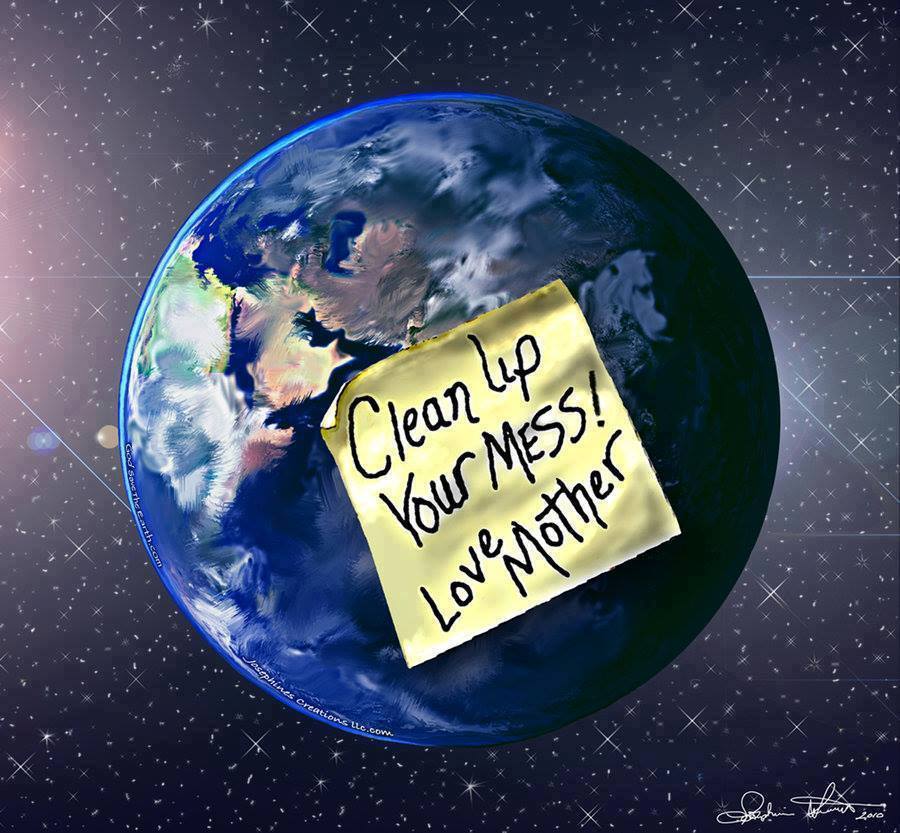 Clean Up
Your MESS!
Love Mother
God Save The Earth.com
Josephines Creations llc.com
2010